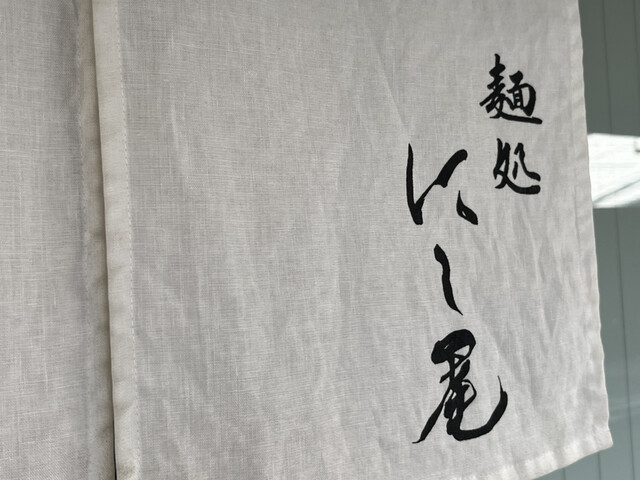 麺処
にし尾